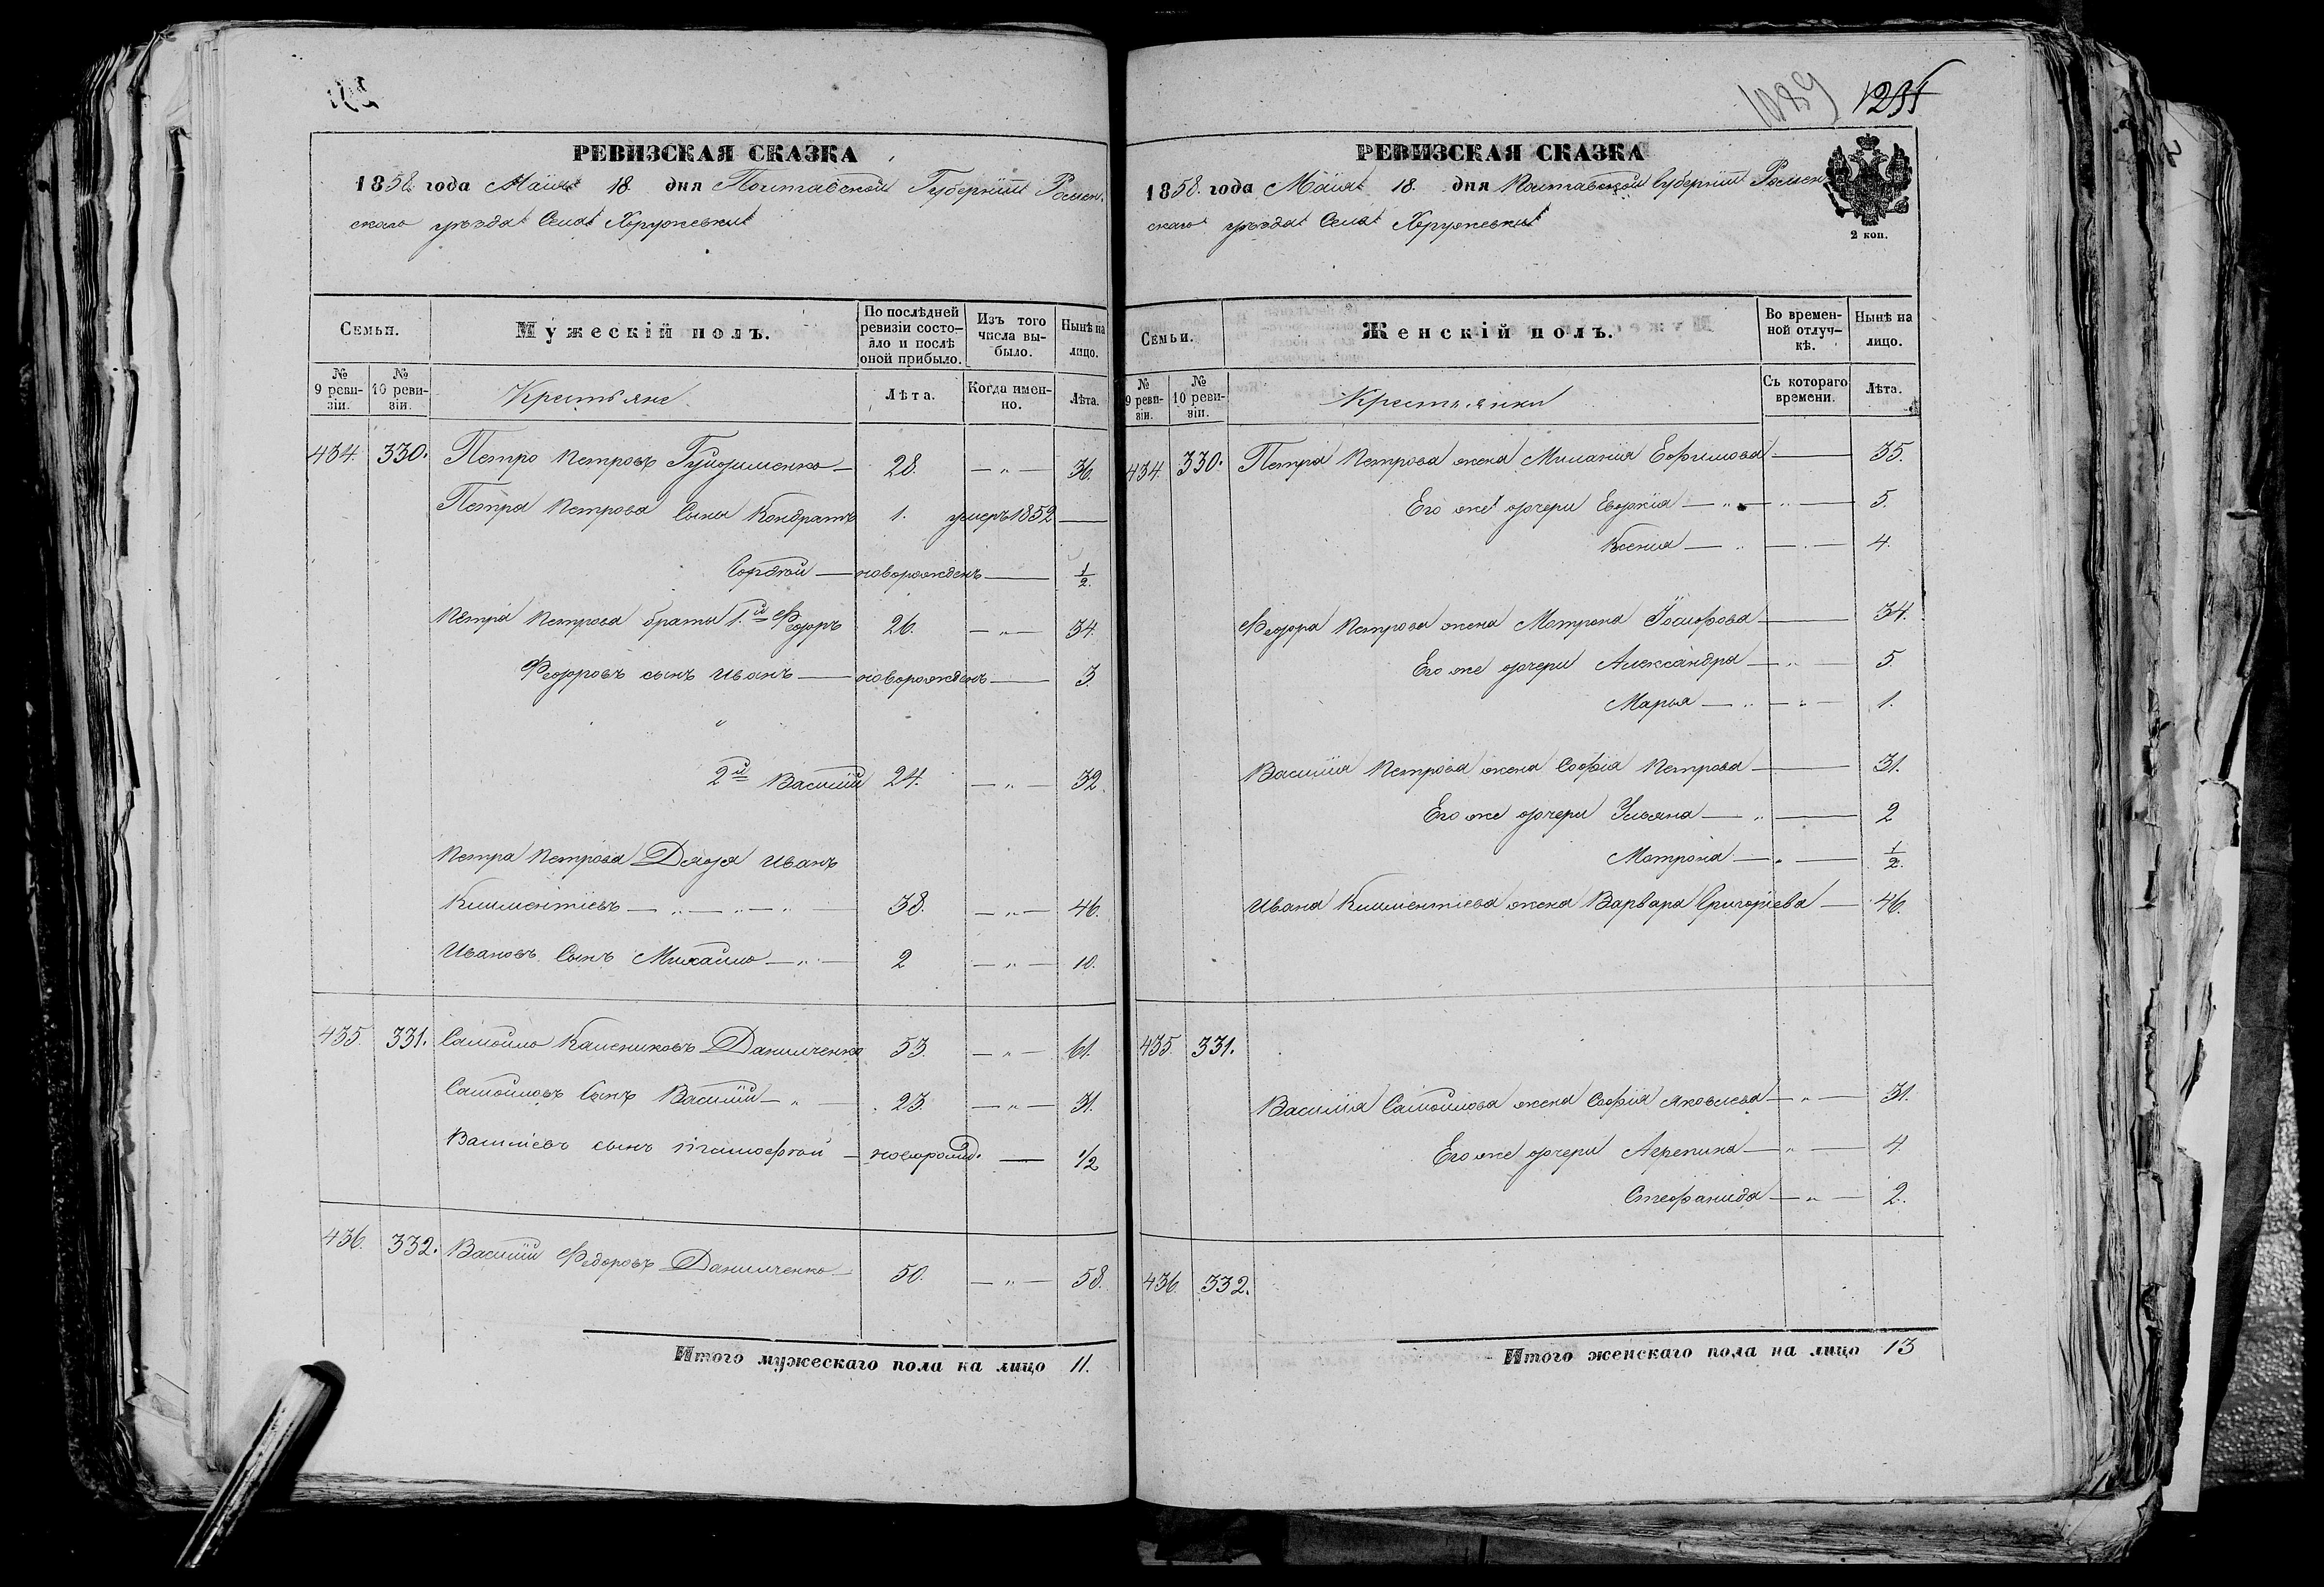 РЕВИЗСКАЯ СКАЗКА
1858. года Маія 18. дня Полтавской Губерніи Ромен-
скаго уѣзда Села Хоружевки
Семьи.
Мужескій полъ.
По послѣдней ревизіи состояло и послѣ оной прибыло.
Изъ того числа выбыло.
Нынѣ на лицо.
№ 9 ревизіи.
№ 10 ревизіи.
Крестьяне
Лѣта.
Когда именно.
Лѣта.
434. 330. Петро Петровъ — 28. — „ — 36.
Петра Петрова Сыны Кондратъ 1. умеръ 1852 —
— новорожденъ — 1/2.
Петра Петрова браты 1.й Федоръ 26. — „ — 34.
Федоровъ сынъ Иванъ — новорожденъ — 3.
2й Василій 24. — „ — 32.
Петра Петрова Дядя Иванъ
Климентіевъ — „ — „ — „ — 38. — „ — 46.
Ивановъ Сынъ Михайло — „ — 2 — „ — 10.
435 331. Самойло Калениковъ Данильченко 53. — „ — 61.
Самойловъ Сынъ Василій — „ — 23. — „ — 31.
Васильевъ сынъ Тимофей — новорожд. — 1/2
436. 332. Василій Федоровъ Данильченко — 50. — „ — 58.
Итого мужескаго пола на лицо 11.
1089 1291
РЕВИЗСКАЯ СКАЗКА
1858. года Маія 18. дня Полтавской Губерніи Ромен-
скаго уѣзда Села Хоружевки
2 коп.
Семьи.
Женскій полъ.
Во временной отлучкѣ.
Нынѣ на лицо.
№ 9 ревизіи.
№ 10 ревизіи.
Крестьянки
Съ котораго времени.
Лѣта.
434. 330. Петра Петрова жена Миланія Ефимова — 35.
Его же дочери Евдокія — „ — „ — 5.
Ксенія — „ — „ — 4.
Федора Петрова жена Мотрона Іосифова — 34.
Его же дочери Александра — „ — 5.
Марья — „ — „ — 1.
Василія Петрова жена Софія Петрова — 31.
Его же дочери Ульяна — „ — 2
Мотрона — „ — 1/2.
Ивана Климентіева жена Варвара Григорьева — 46.
435 331.
Василія Самойлова жена Софія Яковлева — „ — 31.
Его же дочери Агрепина — „ — 4.
Стефанида — „ — 2.
436. 332.
Итого женскаго пола на лицо 13